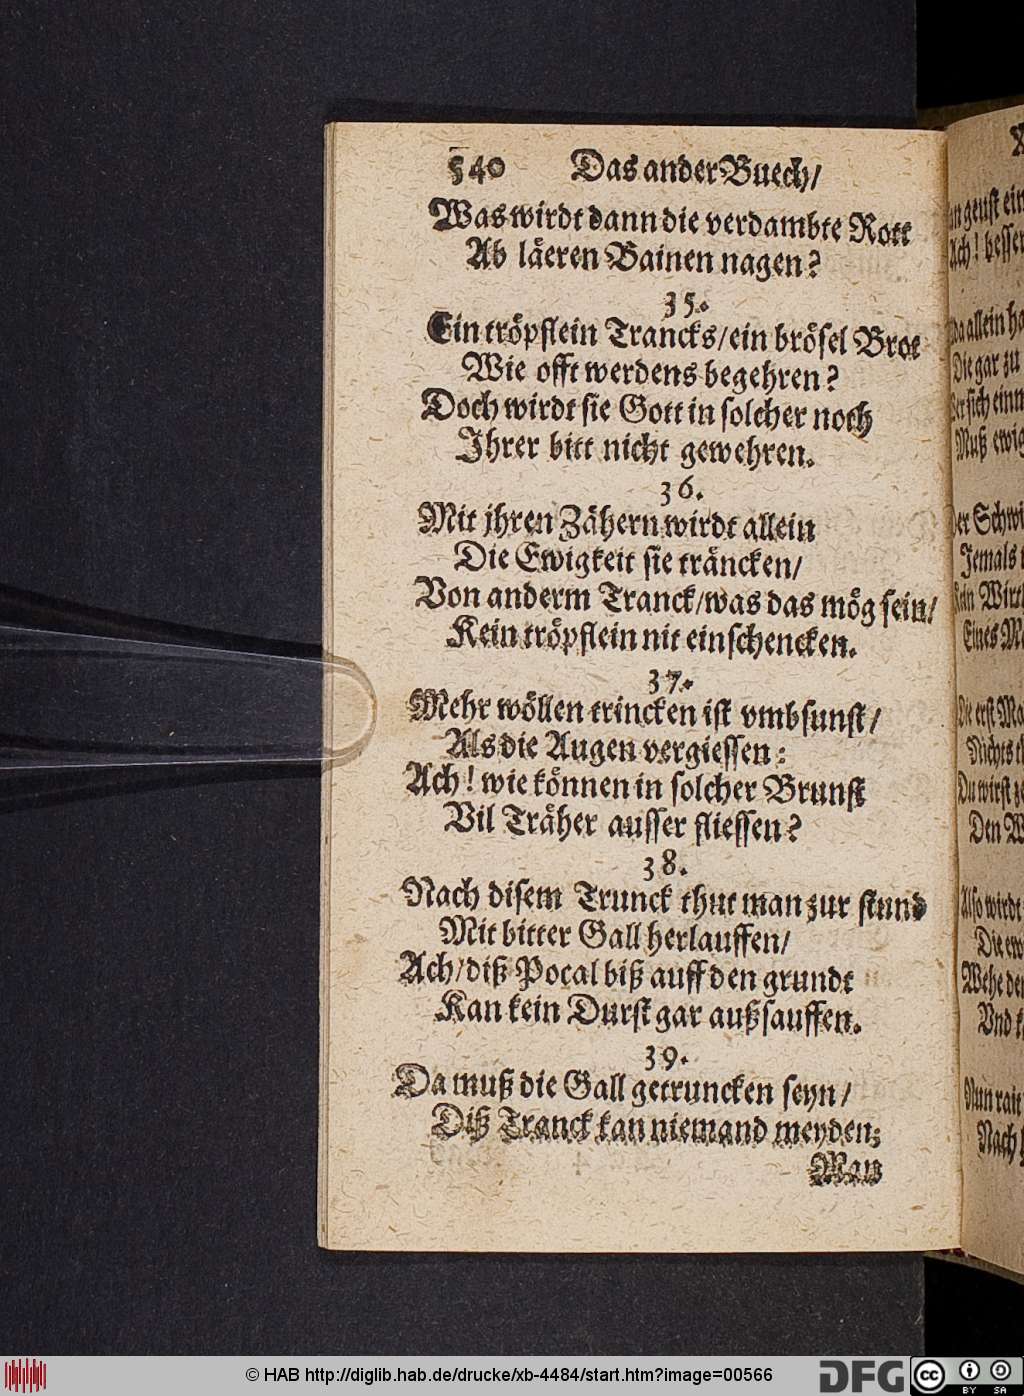 540 Das ander Buech/
Was wirdt dann die verdambte Rott
Ab läeren Bainen nagen?
35.
Ein tröpflein Trancks/ein brösel Brot
Wie offt werdens begehren?
Doch wirdt sie Gott in solcher noth
Ihrer bitt nicht gewehren.
36.
Mit jhren Zähern wirdt allein
Die Ewigkeit sie träncken/
Von anderm Tranck/was das mög sein/
Kein tröpflein nit einschencken.
37.
Mehr wöllen trincken ist vmbsunst/
Als die Augen vergiessen:
Ach! wie können in solcher Brunst
Vil Träher ausser fliessen?
38.
Nach disem Trunck thut man zur stund
Mit bitter Gall herlauffen/
Ach/diß Pocal biß auff den grundt
Kan kein Durst gar außsauffen.
39.
Da muß die Gall getruncken seyn/
Diß Tranck kan niemand meyden;
Man
an geust ein
Ach! besser
da allein
Die gar zu
sich einn
Muß ewig
Jemals
Eines
Die erst
Nichts
Du wirst
Den
Also wirdt
Die ew
Wehe den
Vnd
Nun
Nach
© HAB http://diglib.hab.de/drucke/xb-4484/start.htm?image=00566
DFG
cc BY SA